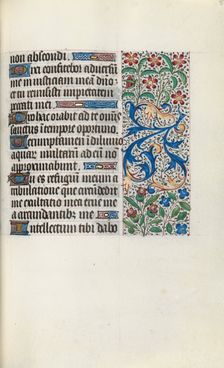 non abscondi.
Dixi confitebor adversum
me iniusticiam meam dño:
et tu remisisti impietatem
peccati mei.
Pro hac orabit ad te omis
sanctus: in tempore oportuno.
Verumptamen in diluvio
aquar multarū: ad eū nō
approximabunt.
Tu es refugiū meum a
tribulatione que circūdedit
me: exultatio mea erue me
a circundantibus me.
Intellectum tibi dabo